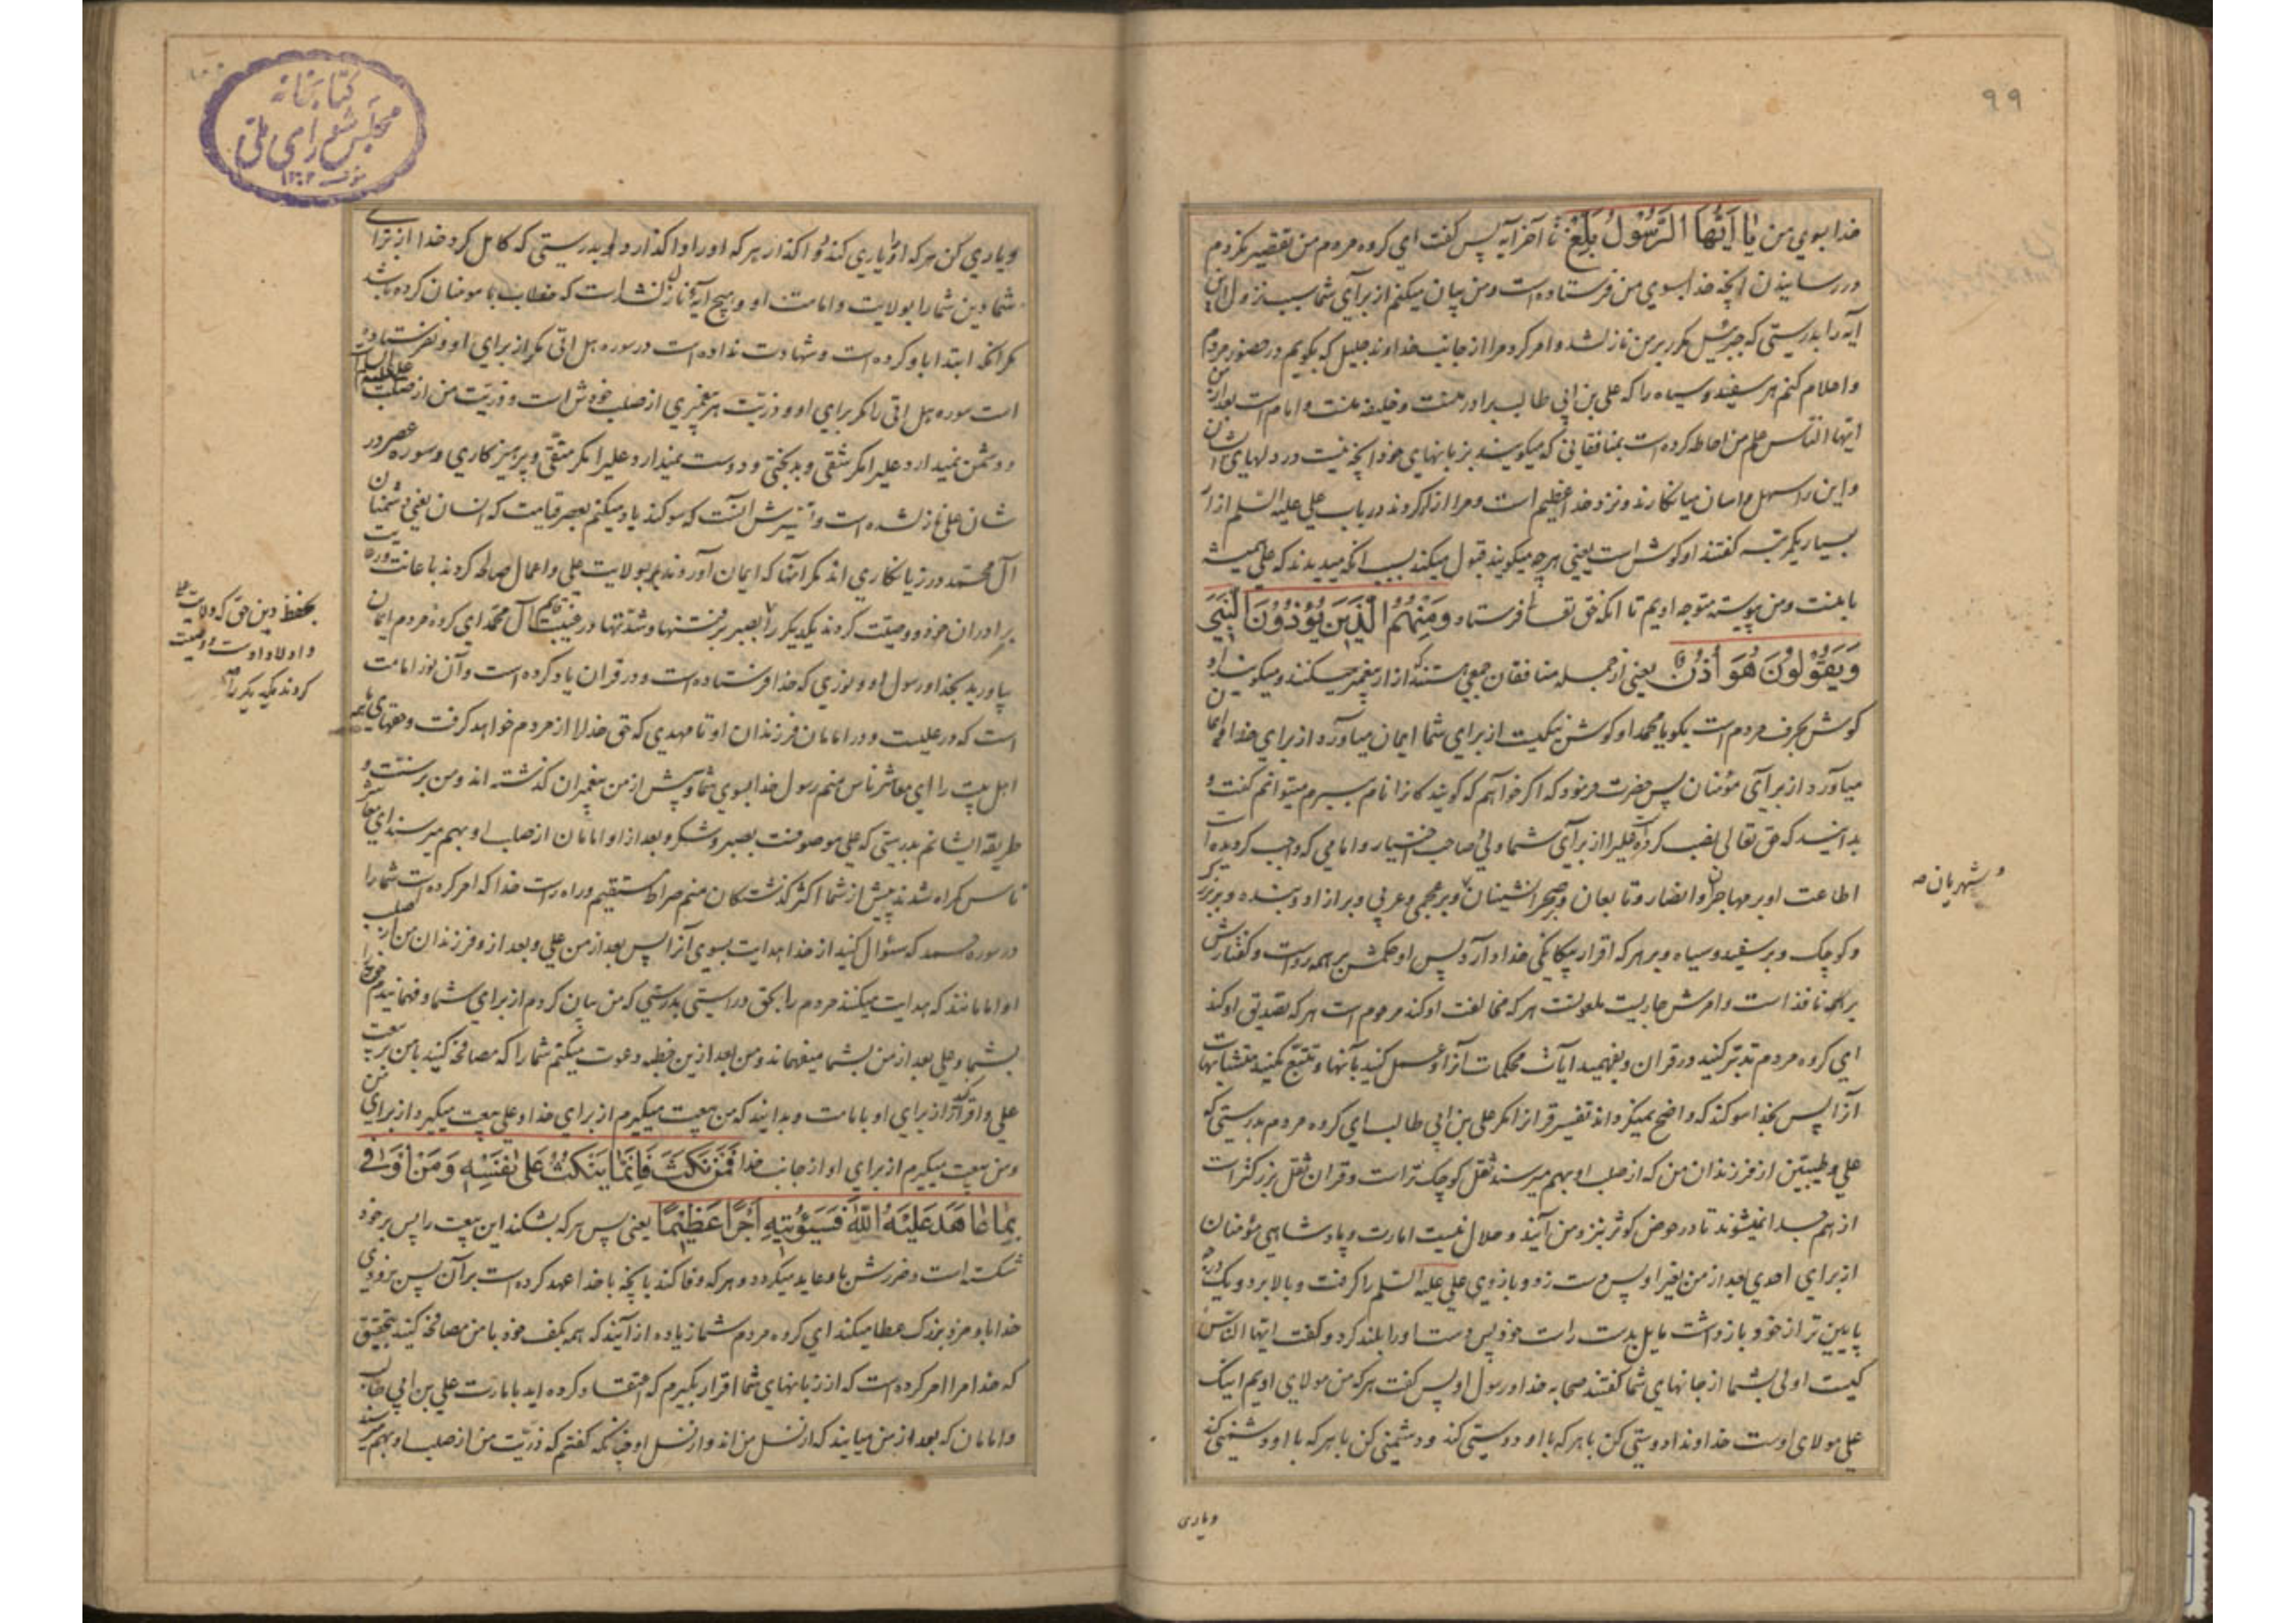 ۹۹
خدا بسوي من یا اَیُّهَا الرَّسُولُ بَلِّغْ تا آخر آیه پس کفت اي کروه مردم من تقصیر نکردم
در رسانیدن آنچه خدا بسوي من فرستاده است و من بیان میکنم از برآي شما سبب نزول این
آیه را بدرستي که جبرئیل مکرر بر من نازل شد و امر کرد مرا از جانب خداوند جلیل که بکویم در حضور مردم
و اعلام کنم هر سفید و سیاه را که علي بن ابي طالب برادر منست و خلیفه منست و امام است بعد از من
ایها الناس علم من احاطه کرده است بمنافقاني که میکویند بزبانهاي خود آنچه نیست در دلهاي ایشان
و این را سهل و اسان میانکارند و نزد خدا عظیم است و مرا ازار کردند در باب علي علیه السلم ازار
بسیار یکمرتبه کفتند او کوش است یعني هرچه میکویند قبول میکند بسبب انکه میدیدند که علي همیشه
با منست و من پیوسته متوجه اویم تا انکه حق تعا فرستاد وَمِنْهُمُ الَّذِینَ یُؤْذُونَ النَّبِيَّ
وَیَقُولُونَ هُوَ أُذُنٌ یعني از جمله منافقان جمعي هستند که ازار پیغمبر میکنند و میکویند او
کوش بحرف مردم است بکو یا محمد او کوش نیکیست از براي شما ایمان میاورد از براي خدا و ایمان
میآورد از برآي مؤمنان پس حضرت فرمود که اکر خواهم که کویندکانرا نام ببرم میتوانم کفت و
بدانید که حق تعالی نصب کرده است علیرا از برآي شما ولي و صاحب اختیار و امامي که واجب کردیده است
اطاعت او بر مهاجران و انصار و تابعان و بر صحرا نشینان و بر عجمي و عربي و بر ازاد و بنده و بر بزرک
و شهریان صه
و کوچک و بر سفید و سیاه و بر هر که اقرار بیکانکي خدا دارد پس او حکمش بر همه رواست و کفتارش
بر همه نافذ است و امرش جاریست ملعونست هر که مخالفت او کند مرحوم است هر که تصدیق او کند
اي کروه مردم تدبّر کنید در قران و بفهمید ایات محکمات آنرا و عمل کنید بآنها و تتبّع مکنید متشابهات
آنرا پس بخدا سوکند که واضح نمیکرداند تفسیر قرانرا مکر علي بن ابي طالب اي کروه مردم بدرستي که
علي و طیبین از فرزندان من که از صلب او بهم میرسند ثقل کوچک تر است و قران ثقل بزرکتر است
از هم جدا نمیشوند تا در حوض کوثر بنزد من آیند و حلال نیست امارت و پادشاهي مؤمنان
از براي احدي بعد از من بغیر او پس دست زد و بازوي علي علیه السلم را کرفت و بالا برد و یک درجه
پایین تر از خود بازداشت مایل بدست راست خود پس دست او را بلند کرد و کفت ایها الناس
کیست اولی بشما از جانهاي شما کفتند صحابه خدا و رسول او پس کفت هر که من مولاي اویم اینک
علي مولاي اوست خداوندا دوستي کن با هر که با او دوستي کند و دشمني کن با هر که با او دشمني کند
ویاری
۱۰۰
کتابخانه
مجلس شورای ملی
و یاري کن هر که او را یاري کند و واکذار هر که او را واکذارد و بدرستي که کامل کرد خدا از براي
شما دین شما را بولایت و امامت او و هیچ آیه نازل نشده است که خطاب با مومنان کرده باشد
مکر انکه ابتدا باو کرده است و شهادت نداده است در سوره هل اتی مکر از براي او و نفرستاده
است سوره هل اتی را مکر براي او و ذریّت هر پیغمبري از صلب خودش است و ذریّت من از صلب علي علیه السلام
و دشمن نمیدارد علیرا مکر شقي و بدبختي و دوست نمیدارد علیرا مکر متقي و پرهیزکاري و سوره عصر در
شان علي نازل شده است و تفسیرش آنست که سوکند یاد میکنم بعصر قیامت که انسان یعني دشمنان
آل محمّد در زیانکاري اند مکر آنها که ایمان آوردند بولایت علي و اعمال صالحه کردند با عانت و
برادران خود و وصیّت کردند یکدیکر را بصبر بر فتنها و شدتها در غیبت قائم آل محمد اي کروه مردم ایمان
بحفظ دین حق که ولایت علي
و اولاد اوست و وصیت
کردند یکدیکر را صه
بیاورید بخدا و رسول او و نوري که خدا فرستاده است و در قران یاد کرده است و آن نور امامت
است که در علیست و در امامان فرزندان او تا مهدي که حق خدا را از مردم خواهد کرفت و حقهاي همه
اهل بیت را اي معاشر ناس منم رسول خدا بسوي شما و پیش از من پیغمبران کذشته اند و من بر سنّت و
طریقه ایشانم بدرستي که علي موصوفست بصبر و شکر و بعد از او امامان از صلب او بهم میرسند اي معاشر
ناس کمراه شدند پیش از شما اکثر کذشتکان منم صراط مستقیم و راه راست خدا که امر کرده است شما را
در سوره حمد که سؤال کنید از خدا هدایت بسوي آنرا پس بعد از من علي و بعد از او فرزندان من از صلب
او امامانند که هدایت میکنند مردم را بحق و راستي بدرستي که من بیان کردم از براي شما و فهمانیدم خود را
بشما و علي بعد از من بشما میفهماند و من بعد از این خطبه دعوت میکنم شما را که مصافحه کنید با من بر بیعت
علي و اقرار از براي او بامامت و بدانید که من بیعت میکیرم از براي خدا و علي بیعت میکیرد از براي من
و من بیعت میکیرم از براي او از جانب خدا فَمَنْ نَکَثَ فَاِنَّمٰا یَنْکُثُ عَلیٰ نَفْسِهِ وَمَنْ اَوْفیٰ
بِمٰا عٰاهَدَ عَلَیْهُ اللّٰهَ فَسَیُؤْتِیهِ اَجْرًا عَظِیمًا یعنی پس هر که بشکند این بیعت را پس بر خود
شکسته است و ضررش باو عاید میکردد و هر که وفا کند بآنچه با خدا عهد کرده است بر آن پس بزودي
خدا باو مزد بزرک عطا میکند اي کروه مردم شما زیاده از آنید که همه بکف خود با من مصافحه کنید بتحقیق
که خدا مرا امر کرده است که از زبانهاي شما اقرار بکیرم که اعتقاد کرده اید بامارت علي بن ابي طالب
و امامان که بعد از من میایند که از نسل من اند و از نسل او چنانکه کفتم که ذریّت من از صلب او بهم میرسند